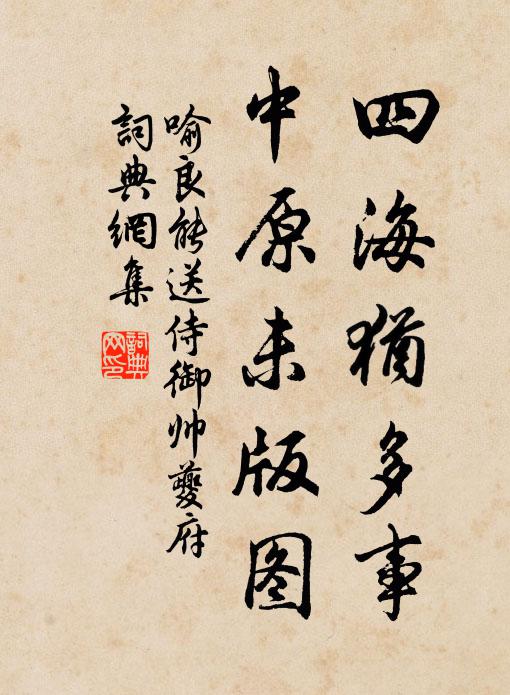 四海犹多事
中原未版图
喻良能送侍御帅夔府
詞典網集
詞典网印